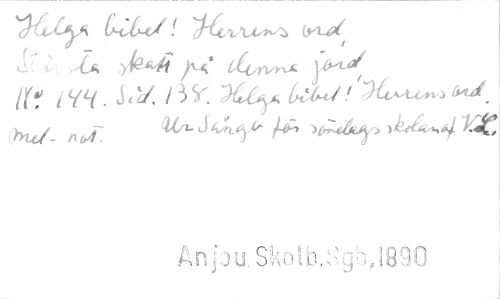 Helga bibel! Herrens ord,
Största skatt på denna jord,
No. 144. Sid. 138. Helga bibel! Herrens ord.
mel. not. Ur Sånger för söndagsskolan af V. L.
Anjou, Skolb. Sgb. 1890